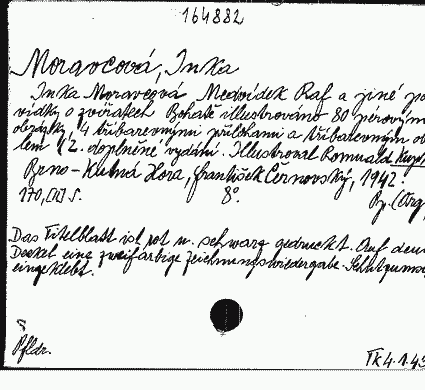 164882
Moravcová, Inka
Inka Moravcová Medvídek Raf a jiné po
vídky o zvířatech Bohatě illustrováno 80 pérovým
obrázky, 4 tříbarevnými přílohami a tříbarevným ob
lem 2. doplněné vydání. Illustroval Romuald
Brno-Kutná Hora, František Černovský, 1942.
170, [II] S. 8°.
Das Titelblatt ist rot u. schwarz gedruckt. Auf dem
Deckel eine zweifärbige Zeichnungswiedergabe. Schutzums
eingeklebt.
Pfldr.
Tk 4.1.43